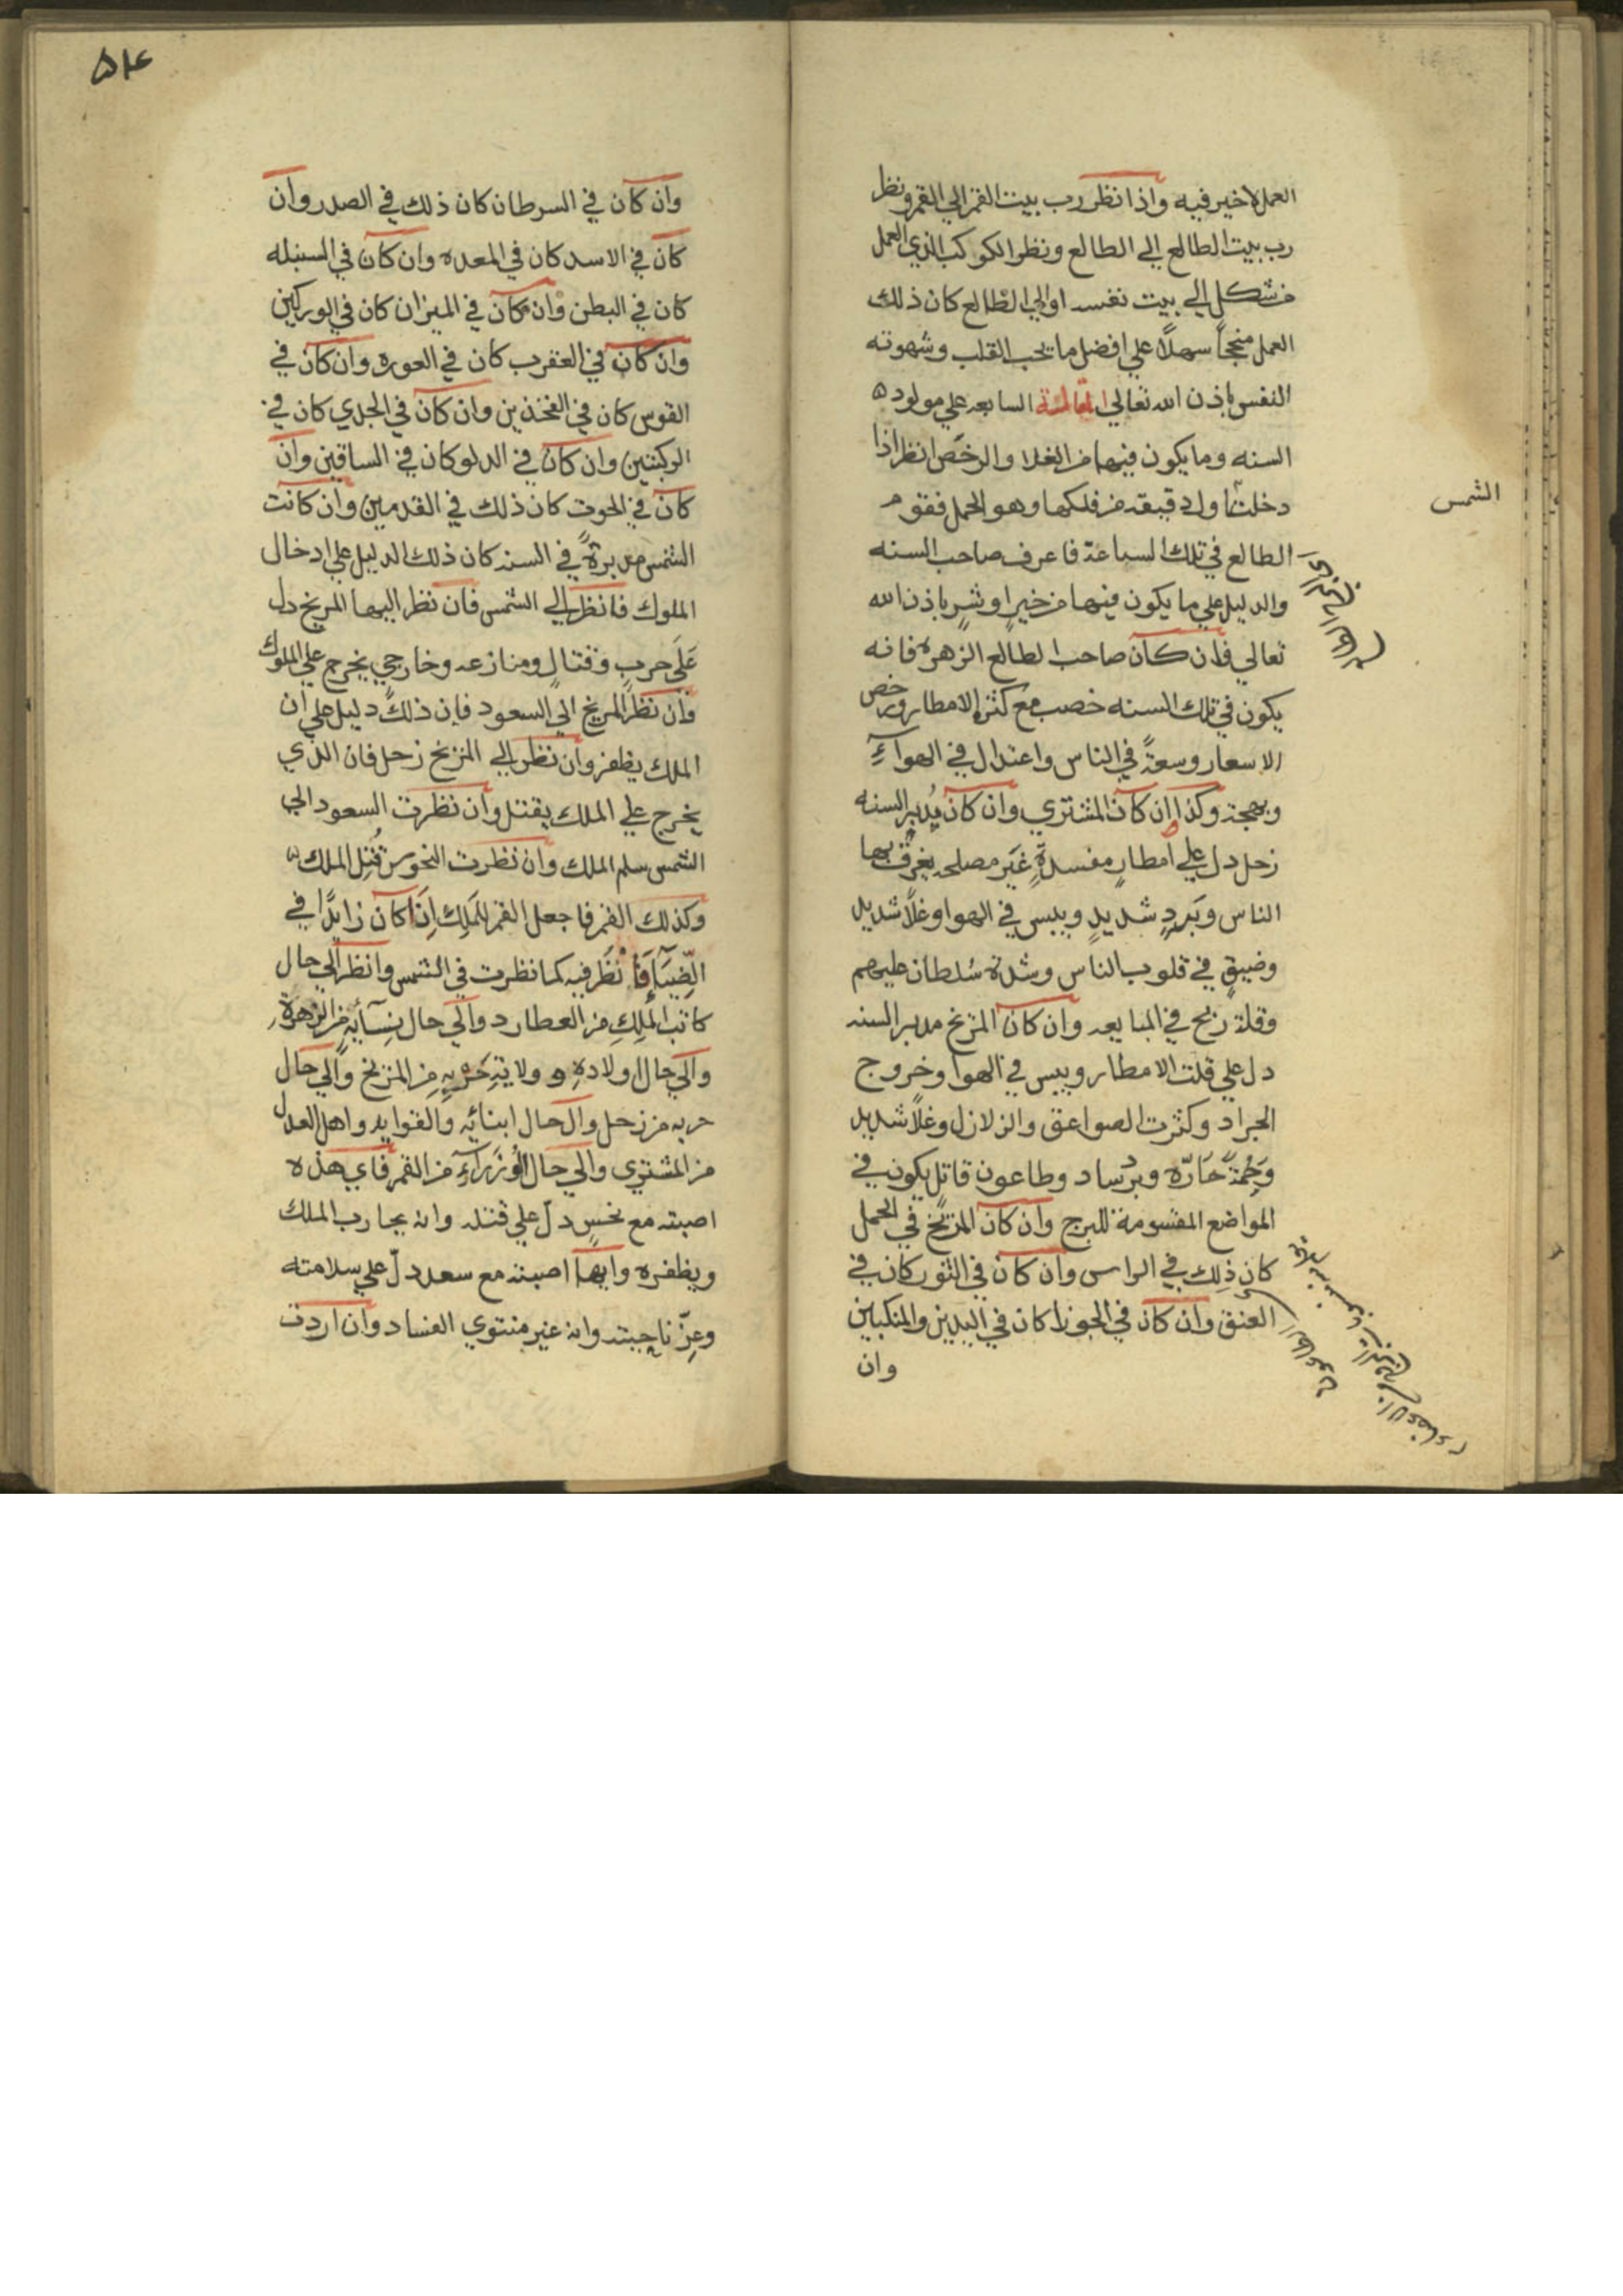 العمل لا خير فيه واذا نظر رب بيت القمر الي القمر ونظر
رب بيت الطالع الي الطالع ونظر الكوكب الذي العمل
من شكل الي بيت نفسه او الي الطالع كان ذلك
العمل منجحاً سهلاً علي افضل ما يحب القلب وشهوته
النفس باذن الله تعالي المقالة السابعه علي مولود
السنه وما يكون فيها من الغلا والرخص انظر اذا
دخلت اول دقيقه من فلكها وهو الحمل فقوم
الشمس
الطالع في تلك الساعة فاعرف صاحب السنه
والدليل علي ما يكون فيها من خير او شر باذن الله
تعالي فان كان صاحب الطالع الزهره فانه
يكون في تلك السنه خصب مع كثرة الامطار ورخص
الاسعار وسعةً في الناس واعتدال في الهواءِ
وبهجة وكذا ان كان المشتري وان كان يُدبر السنه
زحل دل علي امطارٍ مفسدةٍ غَير مصلحه يغرق بها
الناس وبَردٍ شديدٍ ويبس في الهوا وغلاً شديد
وضيقٍ في قلوب الناس وشدة سُلطان عليهم
وقلة ربح في المبايعه وان كان المريخ مدبر السنه
دل علي قلت الامطار ويبس في الهوا وخروج
الجراد وكثرت الصواعق والزلازل وغلاً شديد
وَحُمةً حَارّه وبرساد وطاعون قاتل يكون في
المواضع المقسومة للبرج وان كان المريخ في الحمل
كان ذلِك في الراس وان كان في الثور كان في
العنق وان كان في الجوزا كان في اليدين والمنكبين
وان
وان كان في السرطان كان ذلك في الصدر وان
كان في الاسد كان في المعده وان كان في السنبله
كان في البطن وان كان في الميزان كان في الوركين
وان كان في العقرب كان في العوره وان كان في
القوس كان في الفخذين وان كان في الجدي كان في
الركبتين وان كان في الدلو كان في الساقين وان
كان في الحوت كان ذلك في القدمين وان كانت
الشمس مدبرةً في السنه كان ذلك الدليل علي ادخال
الملوك فانظر الي الشمس فان نظر اليها المريخ دل
عَلَي حربٍ وقتالٍ ومنازعه وخارجي يخرج علي الملوك
وان نظر المريخ الي السعود فان ذلك دليل علي ان
الملك يظفر وان نظر الي المريخ زحل فان الذي
يخرج علي الملك يقتل وان نظرت السعود الي
الشمس سلم الملك وان نظرت النحوس قُتِل الملك
وكذلك القمر فاجعل القمر للمَلِك اِذَا كان زايدًا في
الضِيَآءِ فَانْظُر فيه كما نظرت في الشمس وانظر الي حال
كاتب الملِكِ من العطارد والي حال نِسآئِهِ من الزهرة
والي حال اولادهِ وولايةِ حَرْبِهِ من المريخ والي حال
حربه من زحل والي حال ابنائِه والقوايد واهل العدل
من المشتري والي حال الوُزَرآءِ من القمر فاي هذه
اصبته مع نحسٍ دلّ علي قتله وانه يحارب الملك
ويظفره وايها اصبته مع سعد دلّ علي سلامته
وعِزّ ناحيته وانه غير منتوي الفساد وان اردت